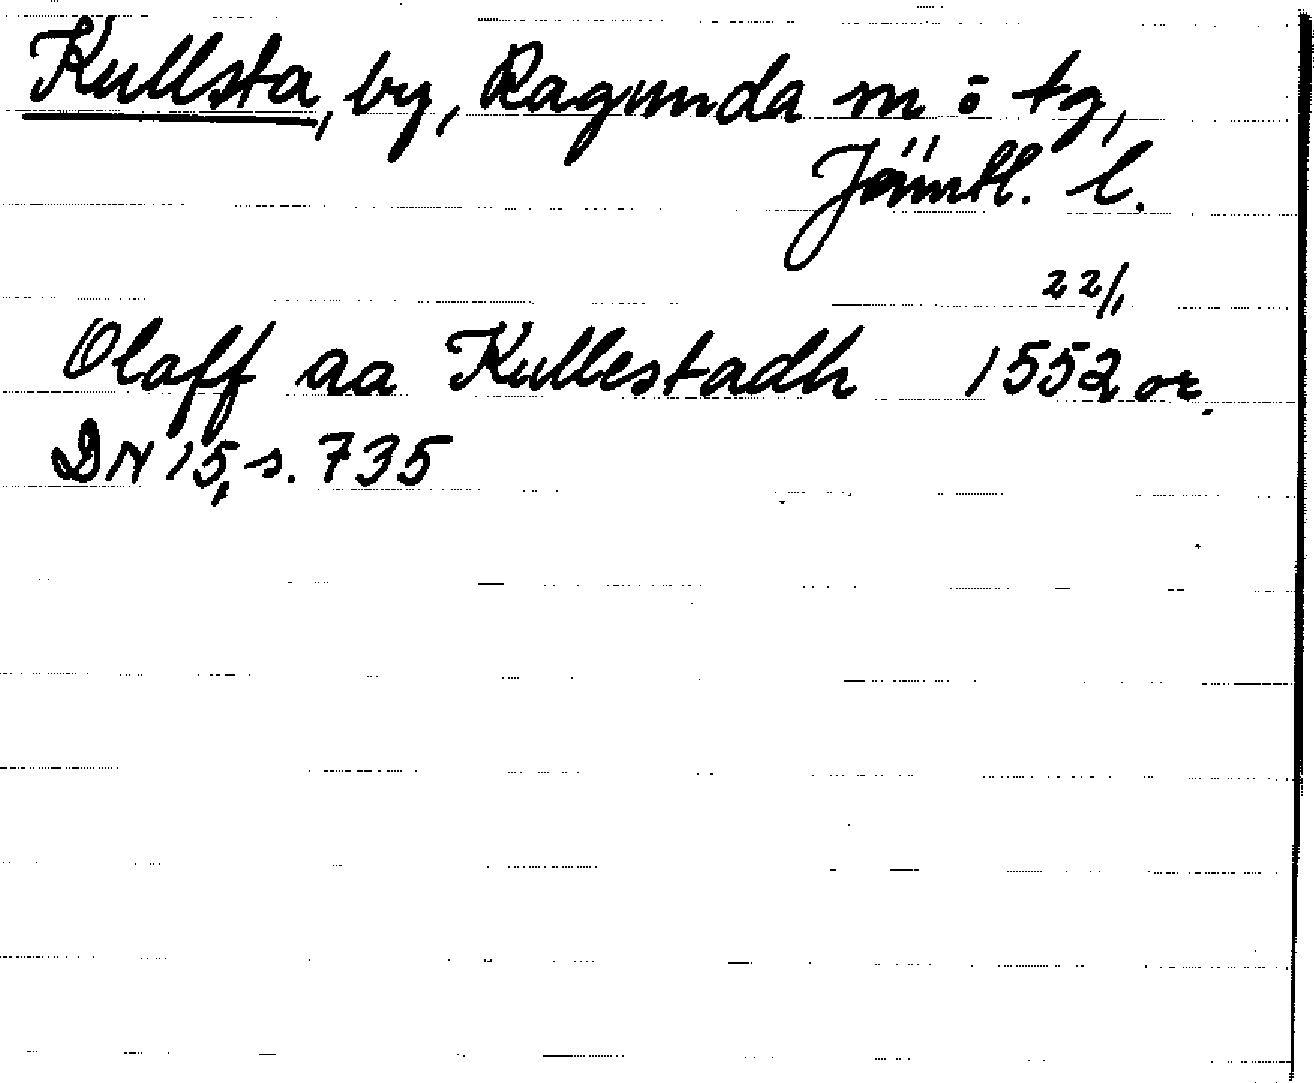 Kullsta, by, Ragunda sn o tg,
Jämtl. l.
22/1
Olaff aa Kullestadh 1552 or.
DN 15, s. 735